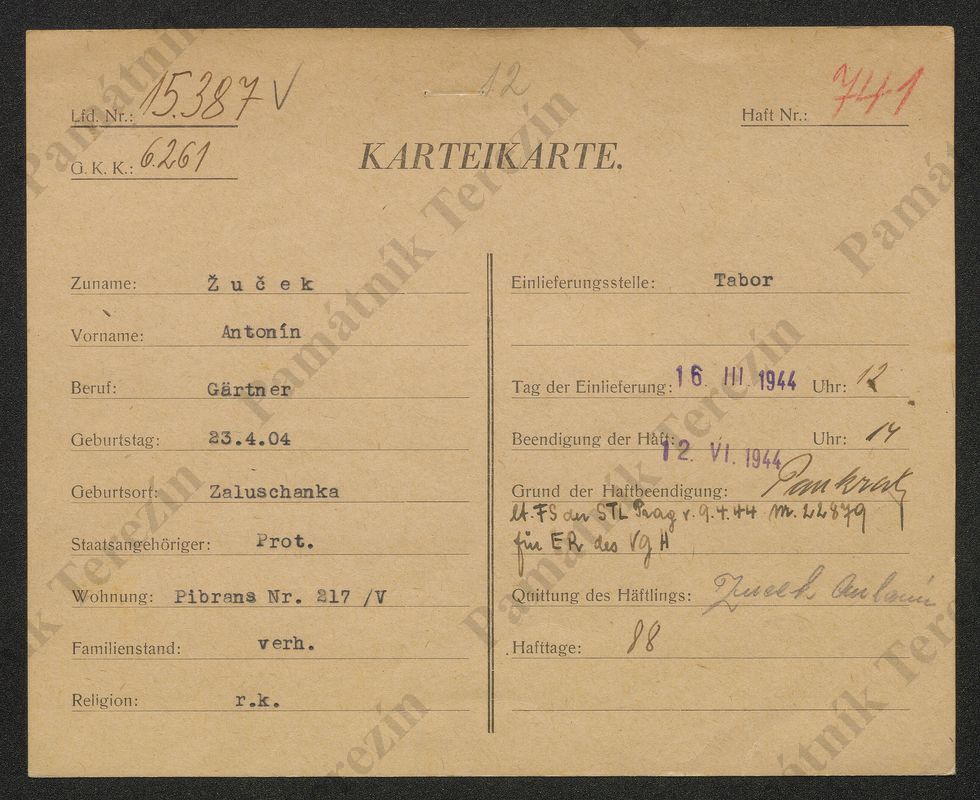 12
Lfd. Nr.: 15.387 V
Haft Nr.: 741
G. K. K.: 6261
KARTEIKARTE.
Zuname: Žuček
Vorname: Antonín
Beruf: Gärtner
Geburtstag: 23.4.04
Geburtsort: Zaluschanka
Staatsangehöriger: Prot.
Wohnung: Pibrans Nr. 217 /V
Familienstand: verh.
Religion: r.k.
Einlieferungsstelle: Tabor
Tag der Einlieferung: 16. III. 1944 Uhr: 12
Beendigung der Haft: 12. VI. 1944 Uhr: 14
Grund der Haftbeendigung: Pankratz
lt. FS der STL Prag v. 9.4.44 Nr. 22879
für ER des VgH
Quittung des Häftlings: Zucek Antonín
Hafttage: 88
Památník Terezín
Památník Terezín
Památník Terezín
Památník Terezín
Památník Terezín